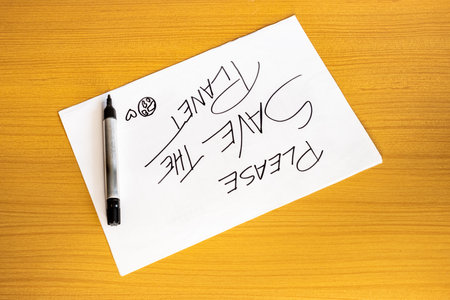 PLEASE
SAVE THE
PLANET